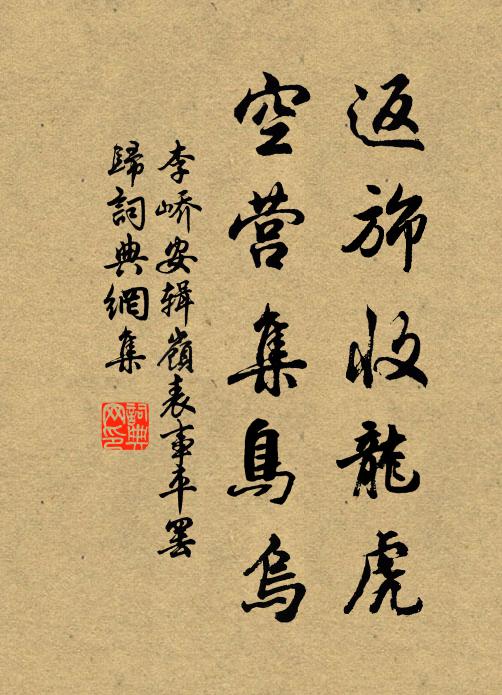 返旆收龍虎
空营集鳥烏
李峤安輯嶺表事平罢
歸詞典網集
詞典
网印